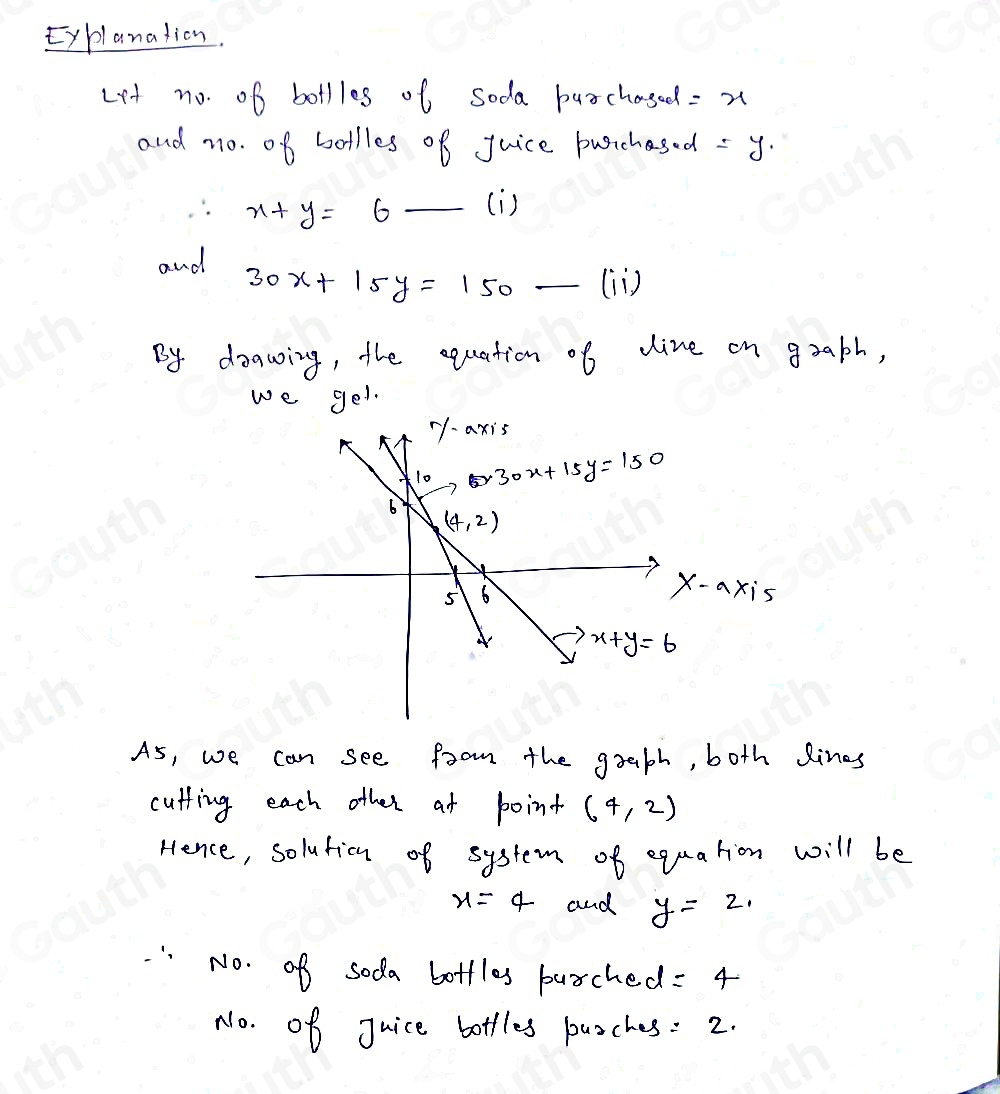 Explanation.
Let no. of bottles of soda purchased = x
and no. of bottles of juice purchased = y.
∴ x + y = 6 — (i)
and 30x + 15y = 150 — (ii)
By drawing, the equation of line on graph,
we get.
Y-axis
10
30x + 15y = 150
6
(4,2)
X-axis
5 6
x+y=6
As, we can see from the graph, both lines
cutting each other at point (4,2)
Hence, solution of system of equation will be
x = 4 and y = 2.
∴ No. of soda bottles purched = 4
No. of Juice bottles purches = 2.
Gauth